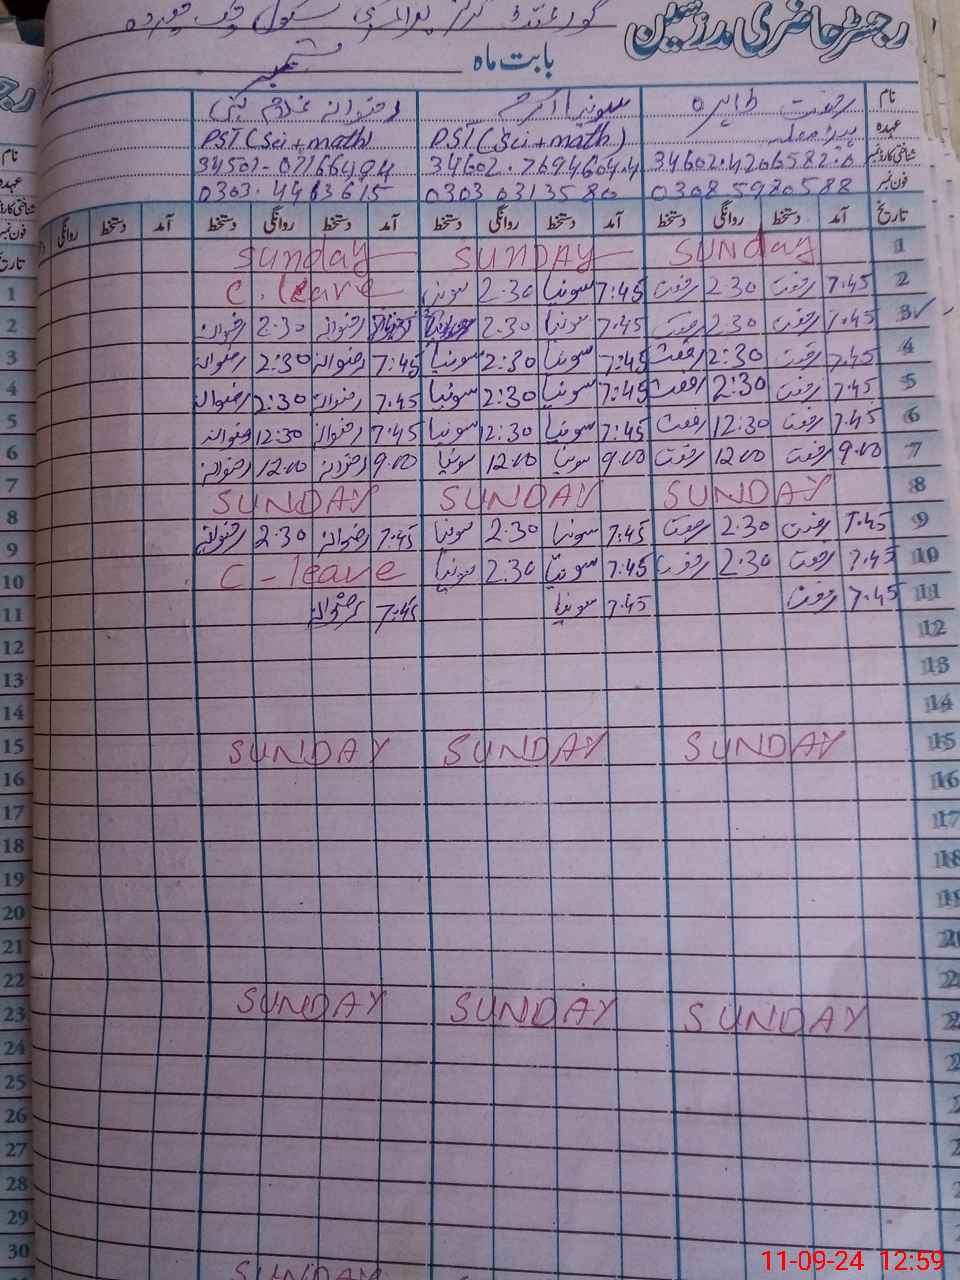 رجسٹر حاضری مدرسین
گورنمنٹ گرلز پرائمری سکول
بابت ماہ ستمبر
نام رفعت طاہرہ سونیا اکرم رضوانہ غلام نبی
عہدہ ہیڈ معلمہ PST (Sci+math) PST (Sci+math)
شناختی کارڈ نمبر 34602.4206582.0 34602.7694604.4 34502-0716649.4
فون نمبر 0308 5980588 0303 0313580 0303.4463615
تاریخ آمد دستخط روانگی دستخط آمد دستخط روانگی دستخط آمد دستخط روانگی دستخط آمد دستخط روانگی
1 SUNday SUNDAY Sunday
2 7:45 رفعت 2.30 رفعت 7:45 سونیا 2.30 سونیا C. leave
3 7.45 رفعت 2.30 رفعت 7.45 سونیا 2.30 رضوانہ 2.30 رضوانہ
4 7.45 رفعت 2:30 رفعت 7:45 سونیا 2:30 سونیا 7:45 رضوانہ 2:30 رضوانہ
5 7.45 رفعت 2:30 رفعت 7:45 سونیا 2:30 سونیا 7.45 رضوانہ 2:30 رضوانہ
6 7.45 رفعت 12:30 رفعت 7:45 سونیا 12:30 سونیا 7:45 رضوانہ 12:30 رضوانہ
7 9.00 رفعت 12.00 رفعت 9.00 سونیا 12.00 سونیا 9.00 رضوانہ 12.00 رضوانہ
8 SUNDAY SUNDAY SUNDAY
9 7.45 رفعت 2.30 رفعت 7:45 سونیا 2.30 سونیا 7:45 رضوانہ 2.30 رضوانہ
10 7.45 رفعت 2.30 رفعت 7.45 سونیا 2.30 سونیا C - leave
11 7.45 رفعت 7.45 سونیا 7:45 رضوانہ
12
13
14
15 SUNDAY SUNDAY SUNDAY
16
17
18
19
20
21
22 SUNDAY SUNDAY SUNDAY
23
24
25
26
27
28
29
30
SUNDAY
نام
عہدہ
شناختی کارڈ
فون نمبر
تاریخ
1
2
3
4
5
6
7
8
9
10
11
12
13
14
15
16
17
18
19
20
21
22
23
24
25
26
27
28
29
30
11-09-24 12:59